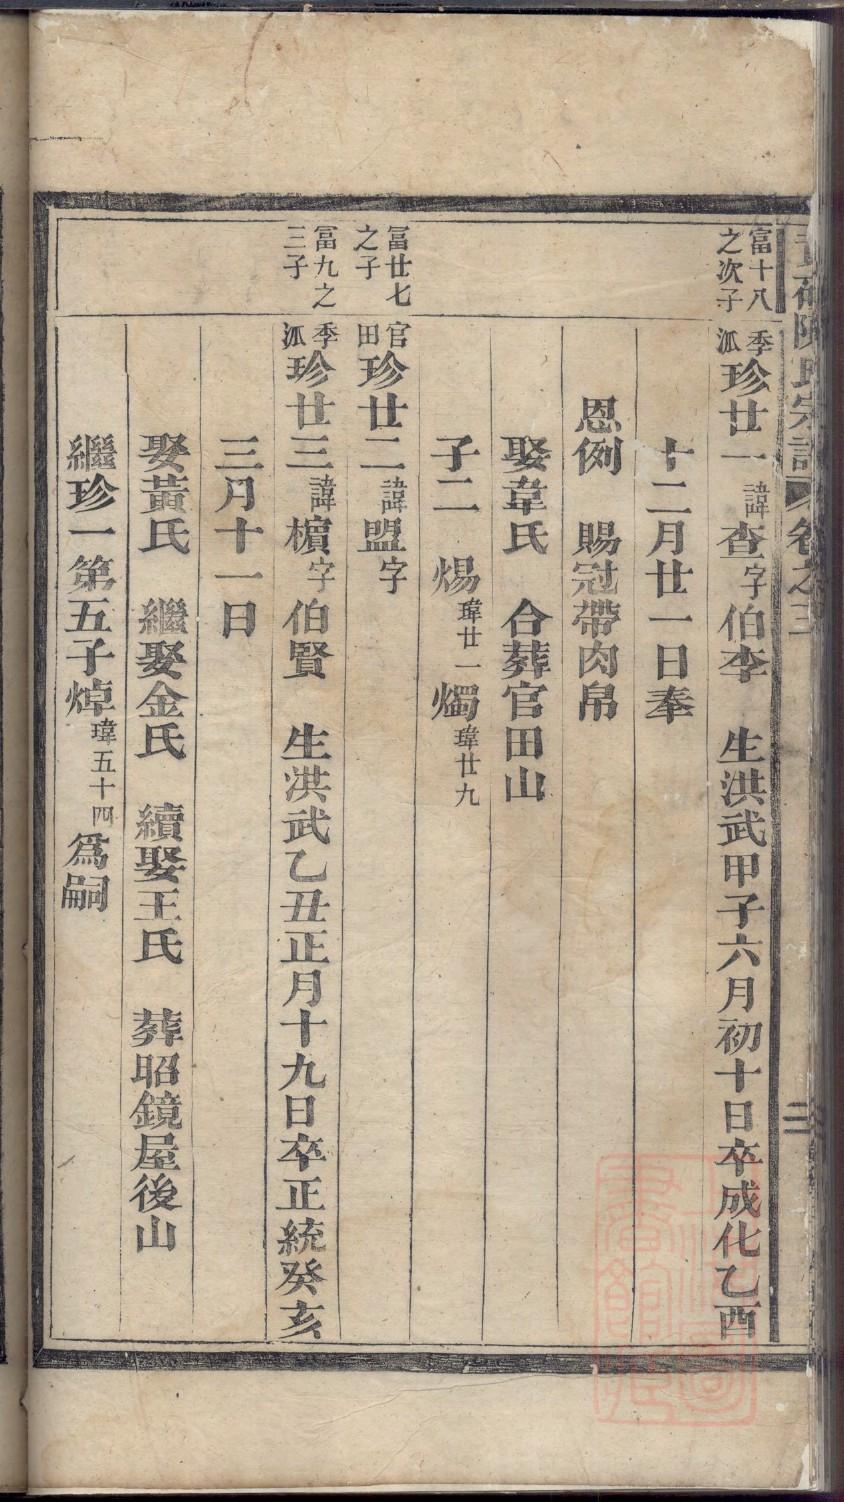 陳氏宗譜 卷之三
二
富十八
之次子
季
派
珍廿一諱查字伯李 生洪武甲子六月初十日卒成化乙酉
十二月廿一日奉
恩例 賜冠帶肉帛
娶韋氏 合葬官田山
子二 煬瑋廿一燭瑋廿九
富廿七
之子
官
田
珍廿二諱盟字
富九之
三子
季
派
珍廿三諱櫝字伯賢 生洪武乙丑正月十九日卒正統癸亥
三月十一日
娶黃氏 繼娶金氏 續娶王氏 葬昭鏡屋後山
繼珍一第五子焯瑋五十四爲嗣